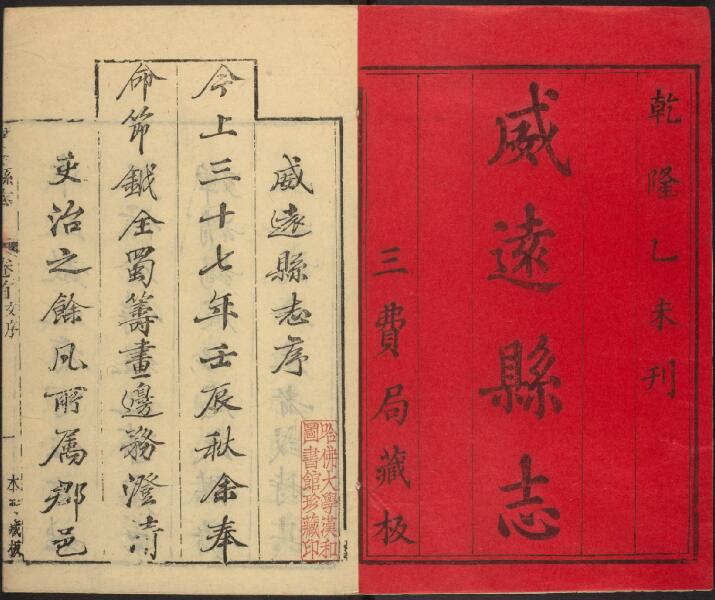 乾隆乙未刊
威遠縣志
三費局藏板
威遠縣志序
今上三十七年壬辰秋余奉
命節鉞全蜀籌畫邊務澄清
吏治之餘凡所属郡邑
哈佛大學漢和
圖書館珍藏印
卷首
序
一